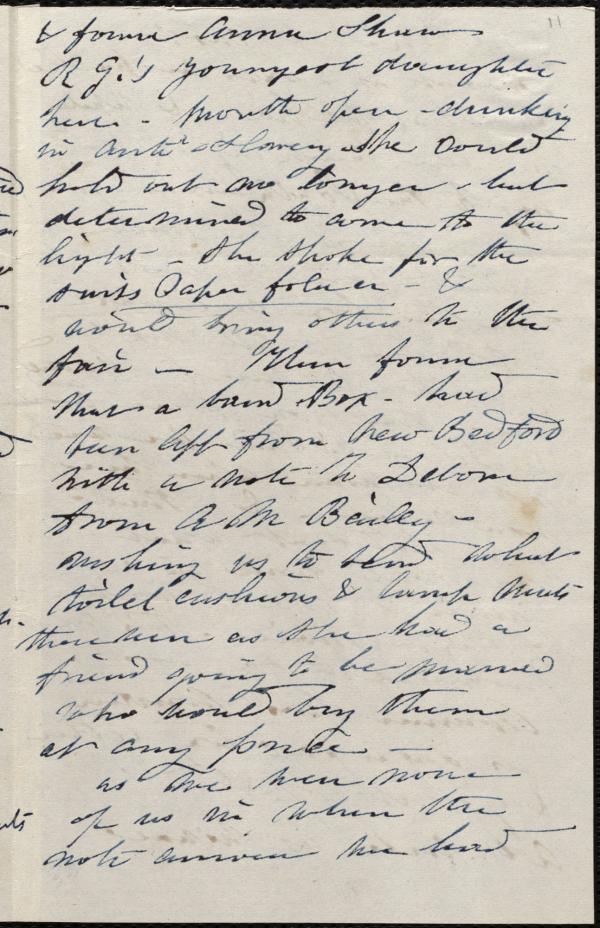 11
& found Anna Shaw
R G.'s youngest daughter
here - mouth open - drinking
in anti-slavery. she could
hold out no longer - but
determined to come to the
light - she spoke for the
swiss Paper folder - &
would bring others to the
fair — Then found
that a band Box - had
been left from New Bedford
with a note to Debora
from A M Bailey -
wishing us to send what
toilet cushions & lamp mats
there were as she had a
friend going to be married
who would buy them
at any price —
as we were none
of us in when the
note arrived we had